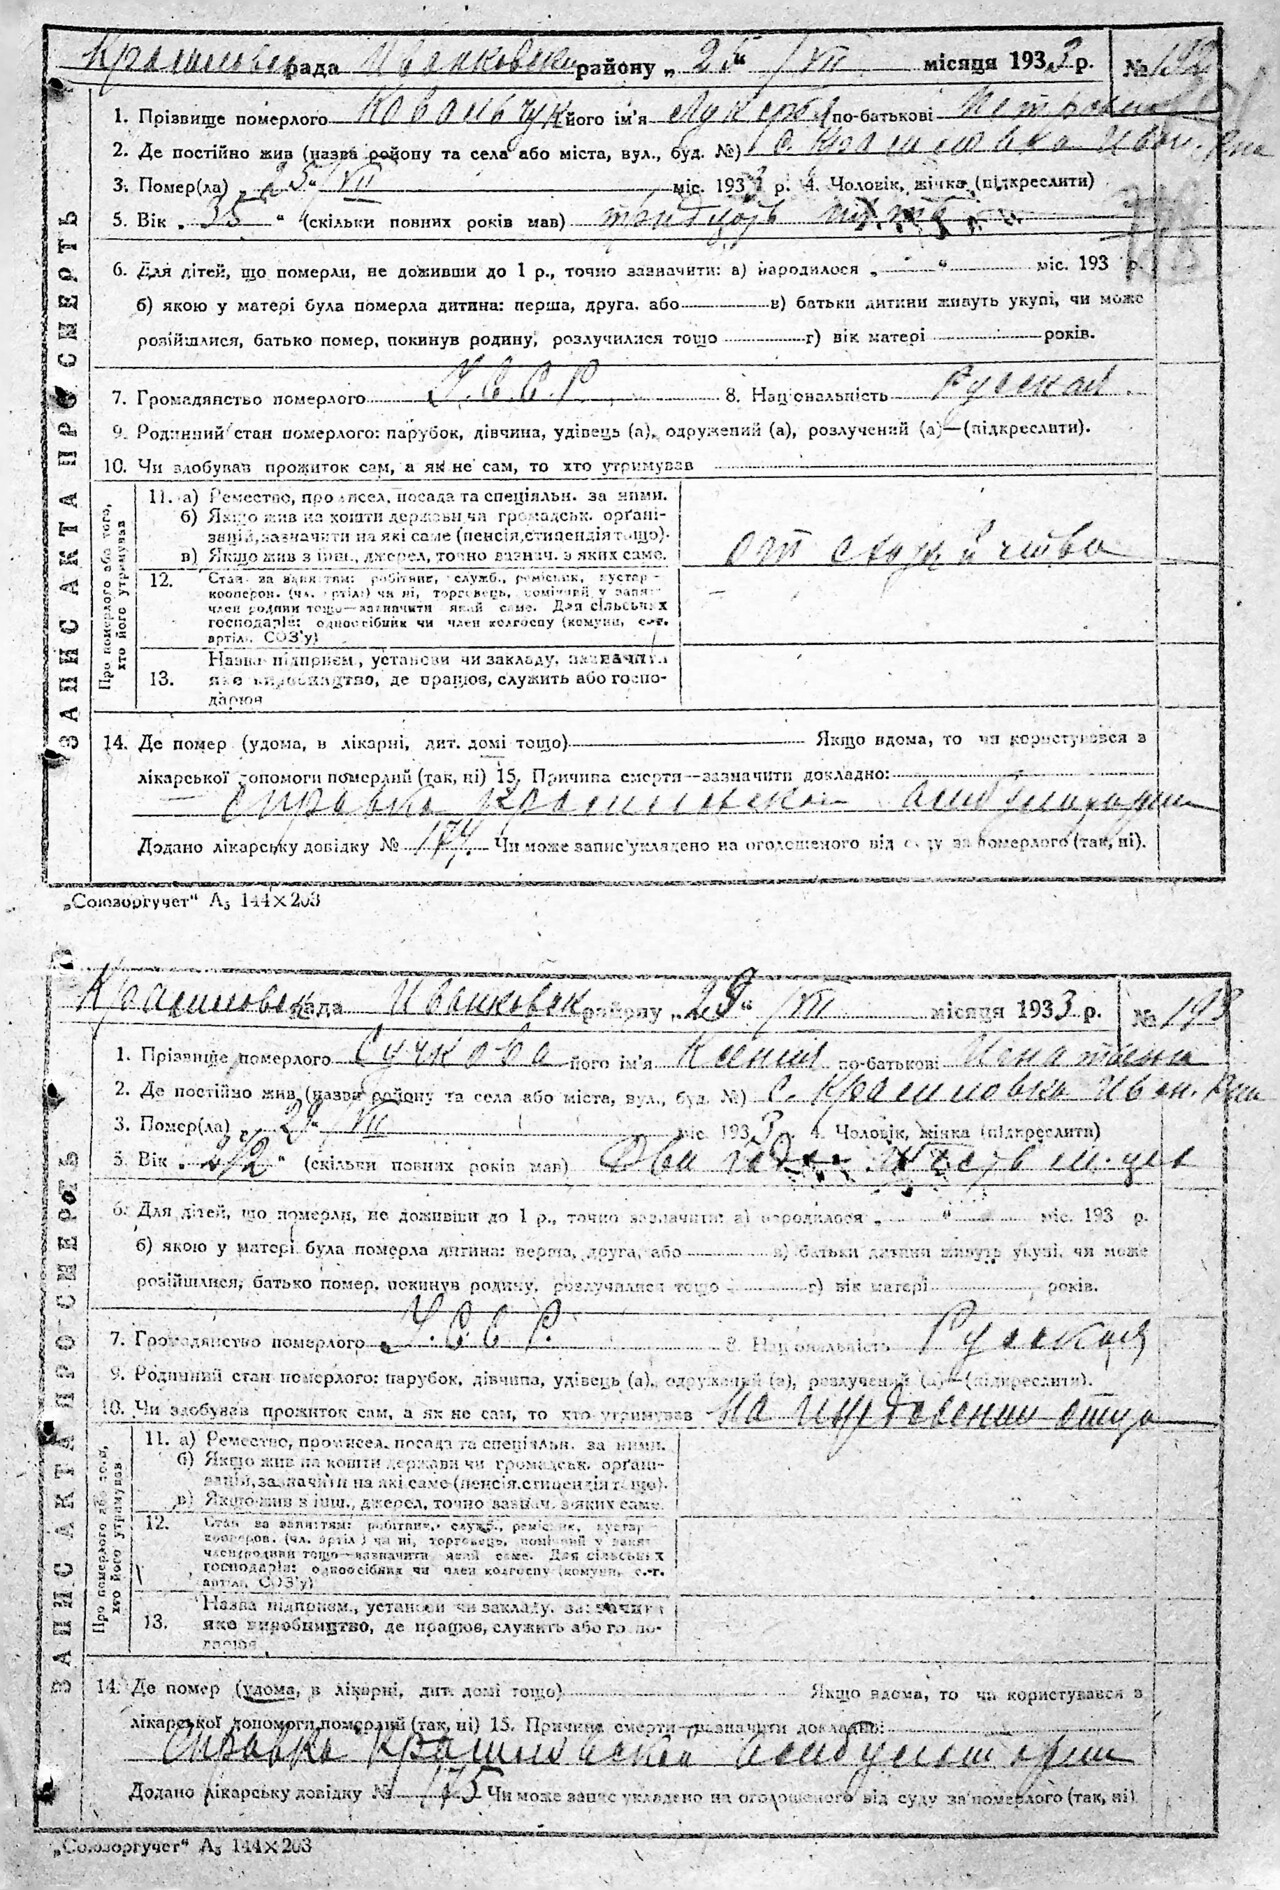 Красиловск рада Иванковск району „ 25 “ VII місяця 1933 р. № 192
1. Прізвище померлого Ковальчук його ім'я Лукерья по-батькові Петровна
2. Де постійно жив (назва району та села або міста, вул., буд. №) с. Красиловка Иван. Р-на
3. Помер(ла) „ 25 “ VII міс. 1933 р. 4. Чоловік, жінка (підкреслити)
5. Вік „ 35 “ (скільки повних років мав) тридцать пять
6. Для дітей, що померли, не доживши до 1 р., точно зазначити: а) народилося „ “ міс. 193 р.
б) якою у матері була померла дитина: перша, друга, або в) батьки дитини живуть укупі, чи може
розійшлися, батько помер, покинув родину, розлучилися тощо г) вік матері років.
7. Громадянство померлого У.С.С.Р. 8. Національність Русская
9. Родинний стан померлого: парубок, дівчина, удівець (а), одружений (а), розлучений (а)—(підкреслити).
10. Чи здобував прожиток сам, а як не сам, то хто утримував
Про померлого або того, хто його утримував
11. а) Ремество, промисел, посада та спеціяльн. за ними.
б) Якщо жив на кошти держави чи громадськ. органі-
зацій, зазначити на які саме (пенсія, стипендія тощо).
в) Якщо жив з інш., джерел, точно зазнач. з яких саме.
от
12. Стан за заняттям: робітник, служб., ремісник, кустар-
кооперов. (чл. артілі) чи ні, торговець, помічний у занят.
член родини тощо—зазначити який саме. Для сільських
господарів: одноосібник чи член колгоспу (комуни, с.-г.
артілі, СОЗ'у)
13. Назва підприєм., установи чи закладу, зазначити
яке виробництво, де працює, служить або госпо-
дарює
14. Де помер (удома, в лікарні, дит. домі тощо) Якщо вдома, то чи користувався з
лікарської допомоги померлий (так, ні) 15. Причина смерти—зазначити докладно:
Справка Красиловской амбулатории
Додано лікарську довідку № 174 Чи може запис укладено на оголошеного від суду за померлого (так, ні).
ЗАПИС АКТА ПРО СМЕРТЬ
„Союзоргучет“ А₅ 144×203
Красиловск рада Иванковск району „ 29 “ VII місяця 1933 р. № 193
1. Прізвище померлого Сучкова його ім'я Ксения по-батькові Игнатовна
2. Де постійно жив (назва району та села або міста, вул., буд. №) с. Красиловка Иван. Р-на
3. Помер(ла) „ 29 “ VII міс. 1933 р. 4. Чоловік, жінка (підкреслити)
5. Вік „ 2½ “ (скільки повних років мав) Два года шесть м-цев
6. Для дітей, що померли, не доживши до 1 р., точно зазначити: а) народилося „ “ міс. 193 р.
б) якою у матері була померла дитина: перша, друга, або в) батьки дитини живуть укупі, чи може
розійшлися, батько помер, покинув родину, розлучилися тощо г) вік матері років.
7. Громадянство померлого У.С.С.Р. 8. Національність Русская
9. Родинний стан померлого: парубок, дівчина, удівець (а), одружений (а), розлучений (а)—(підкреслити).
10. Чи здобував прожиток сам, а як не сам, то хто утримував На иждевении отца
Про померлого або того, хто його утримував
11. а) Ремество, промисел, посада та спеціяльн. за ними.
б) Якщо жив на кошти держави чи громадськ. органі-
зацій, зазначити на які саме (пенсія, стипендія тощо).
в) Якщо жив з інш., джерел, точно зазнач. з яких саме.
12. Стан за заняттям: робітник, служб., ремісник, кустар-
кооперов. (чл. артілі) чи ні, торговець, помічний у занят.
член родини тощо—зазначити який саме. Для сільських
господарів: одноосібник чи член колгоспу (комуни, с.-г.
артілі, СОЗ'у)
13. Назва підприєм., установи чи закладу, зазначити
яке виробництво, де працює, служить або госпо-
дарює
14. Де помер (удома, в лікарні, дит. домі тощо) Якщо вдома, то чи користувався з
лікарської допомоги померлий (так, ні) 15. Причина смерти—зазначити докладно:
Справка Красиловской амбулатории
Додано лікарську довідку № 175 Чи може запис укладено на оголошеного від суду за померлого (так, ні)
ЗАПИС АКТА ПРО СМЕРТЬ
„Союзоргучет“ А₅ 144×203